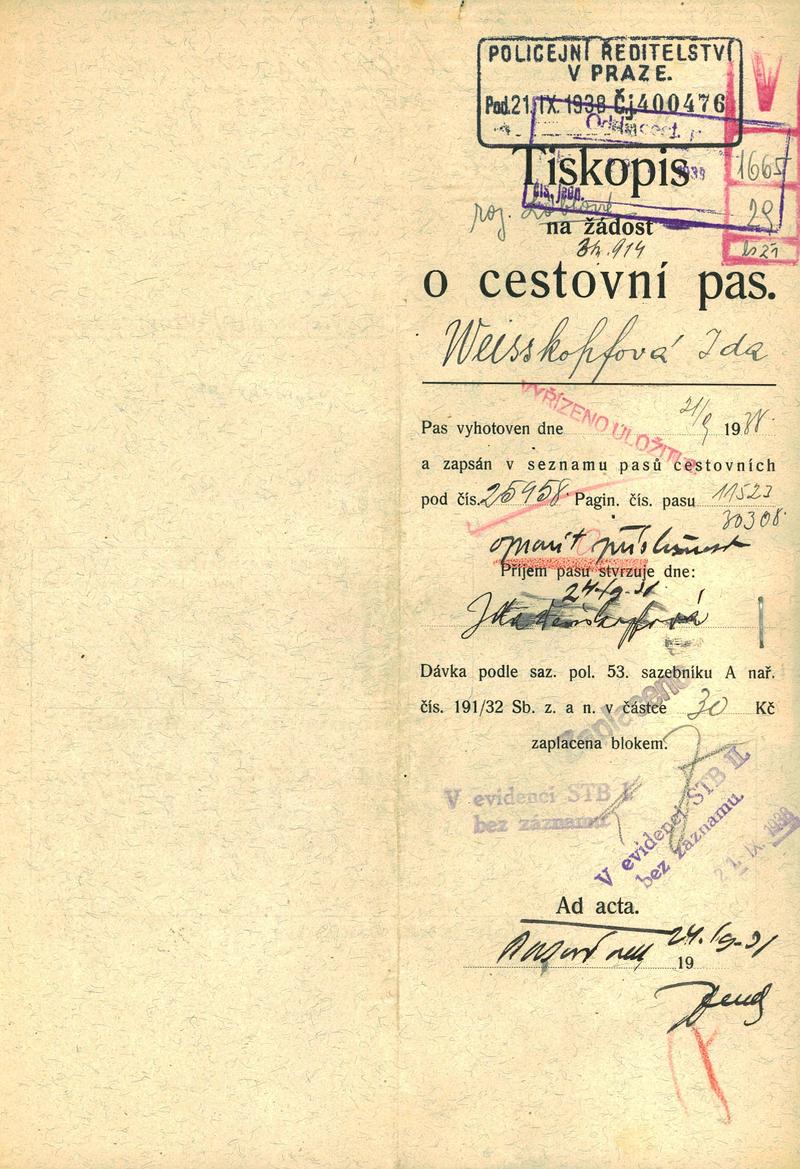 POLICEJNÍ ŘEDITELSTVÍ
V PRAZE.
Pod. 21. IX. 1938 Čj 400476
1665
29
čís. jedn.
Tiskopis
roj.
na žádost
o cestovní pas.
Weisskopfová Ida
VYŘÍZENO ULOŽITI
Pas vyhotoven dne 21/9 1938
a zapsán v seznamu pasů cestovních
pod čís. 25958 Pagin. čís. pasu 11523
30308
opravit příslušnost
Příjem pasu stvrzuje dne:
Ida Weisskopfová
Dávka podle saz. pol. 53. sazebníku A nař.
čís. 191/32 Sb. z. a n. v částce 30 Kč
Zaplaceno
zaplacena blokem.
V evidenci STB II.
bez záznamu
V evidenci STB II.
bez záznamu
21. IX. 1938
Ad acta.
19